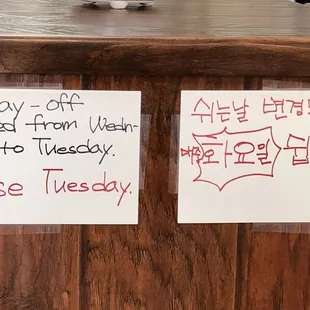 ay-off
ed from Wedn-
to Tuesday.
se Tuesday.
쉬는날 변경
매주 화요일 쉽